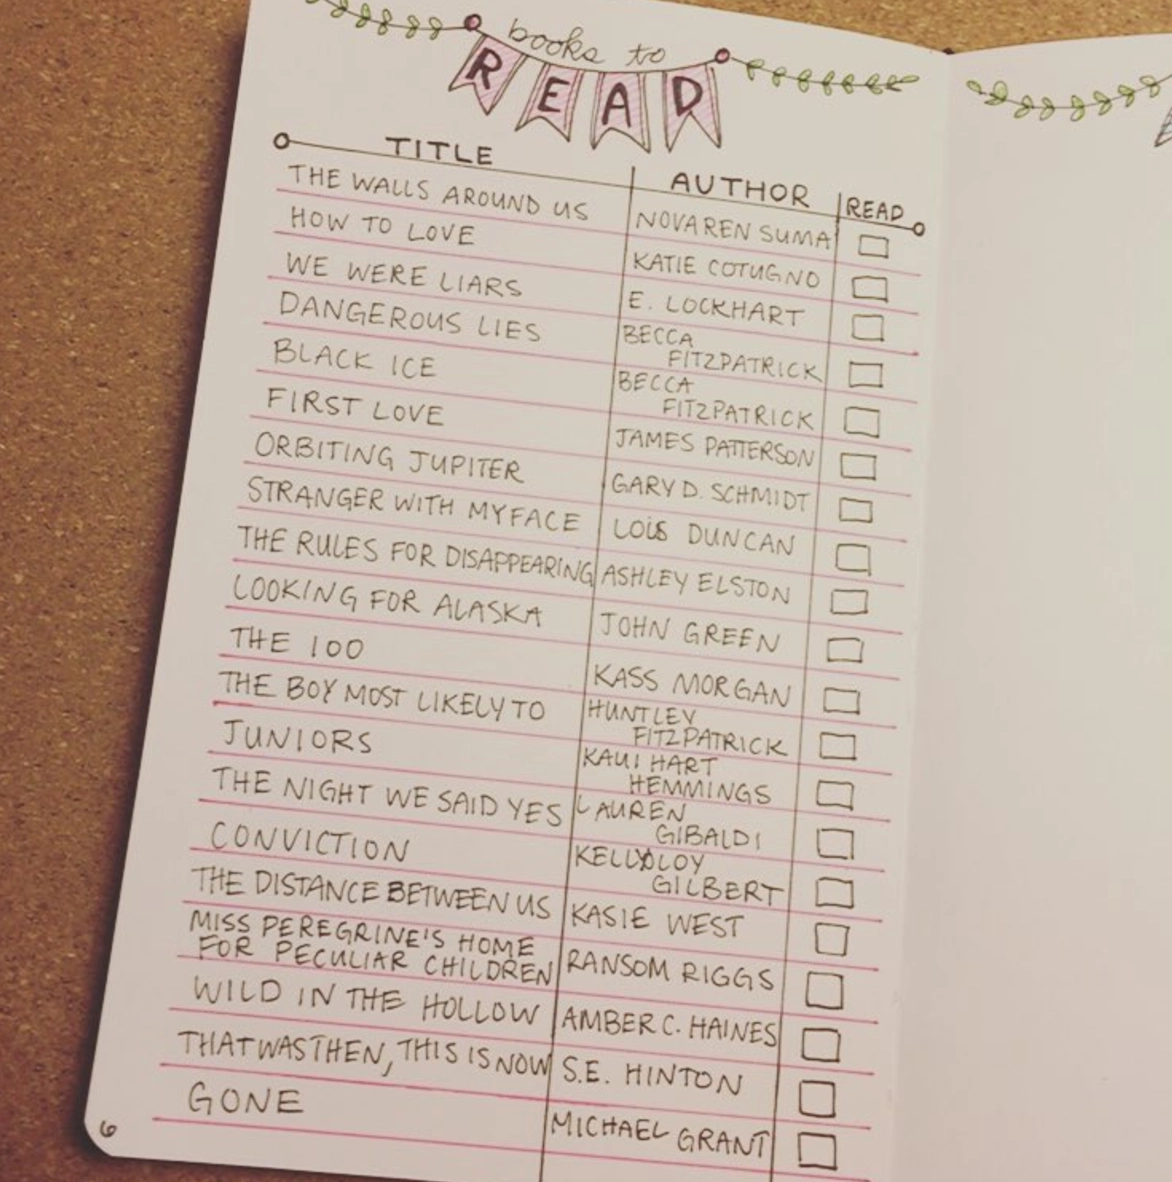 books to
READ
TITLE AUTHOR READ
THE WALLS AROUND US NOVA REN SUMA
HOW TO LOVE KATIE COTUGNO
WE WERE LIARS E. LOCKHART
DANGEROUS LIES BECCA
FITZPATRICK
BLACK ICE BECCA
FITZPATRICK
FIRST LOVE JAMES PATTERSON
ORBITING JUPITER GARY D. SCHMIDT
STRANGER WITH MY FACE LOIS DUNCAN
THE RULES FOR DISAPPEARING ASHLEY ELSTON
LOOKING FOR ALASKA JOHN GREEN
THE 100 KASS MORGAN
THE BOY MOST LIKELY TO HUNTLEY
FITZPATRICK
JUNIORS KAUI HART
HEMMINGS
THE NIGHT WE SAID YES LAUREN
GIBALDI
CONVICTION KELLY LOY
GILBERT
THE DISTANCE BETWEEN US KASIE WEST
MISS PEREGRINE'S HOME
FOR PECULIAR CHILDREN RANSOM RIGGS
WILD IN THE HOLLOW AMBER C. HAINES
THAT WAS THEN, THIS IS NOW S.E. HINTON
GONE MICHAEL GRANT
6